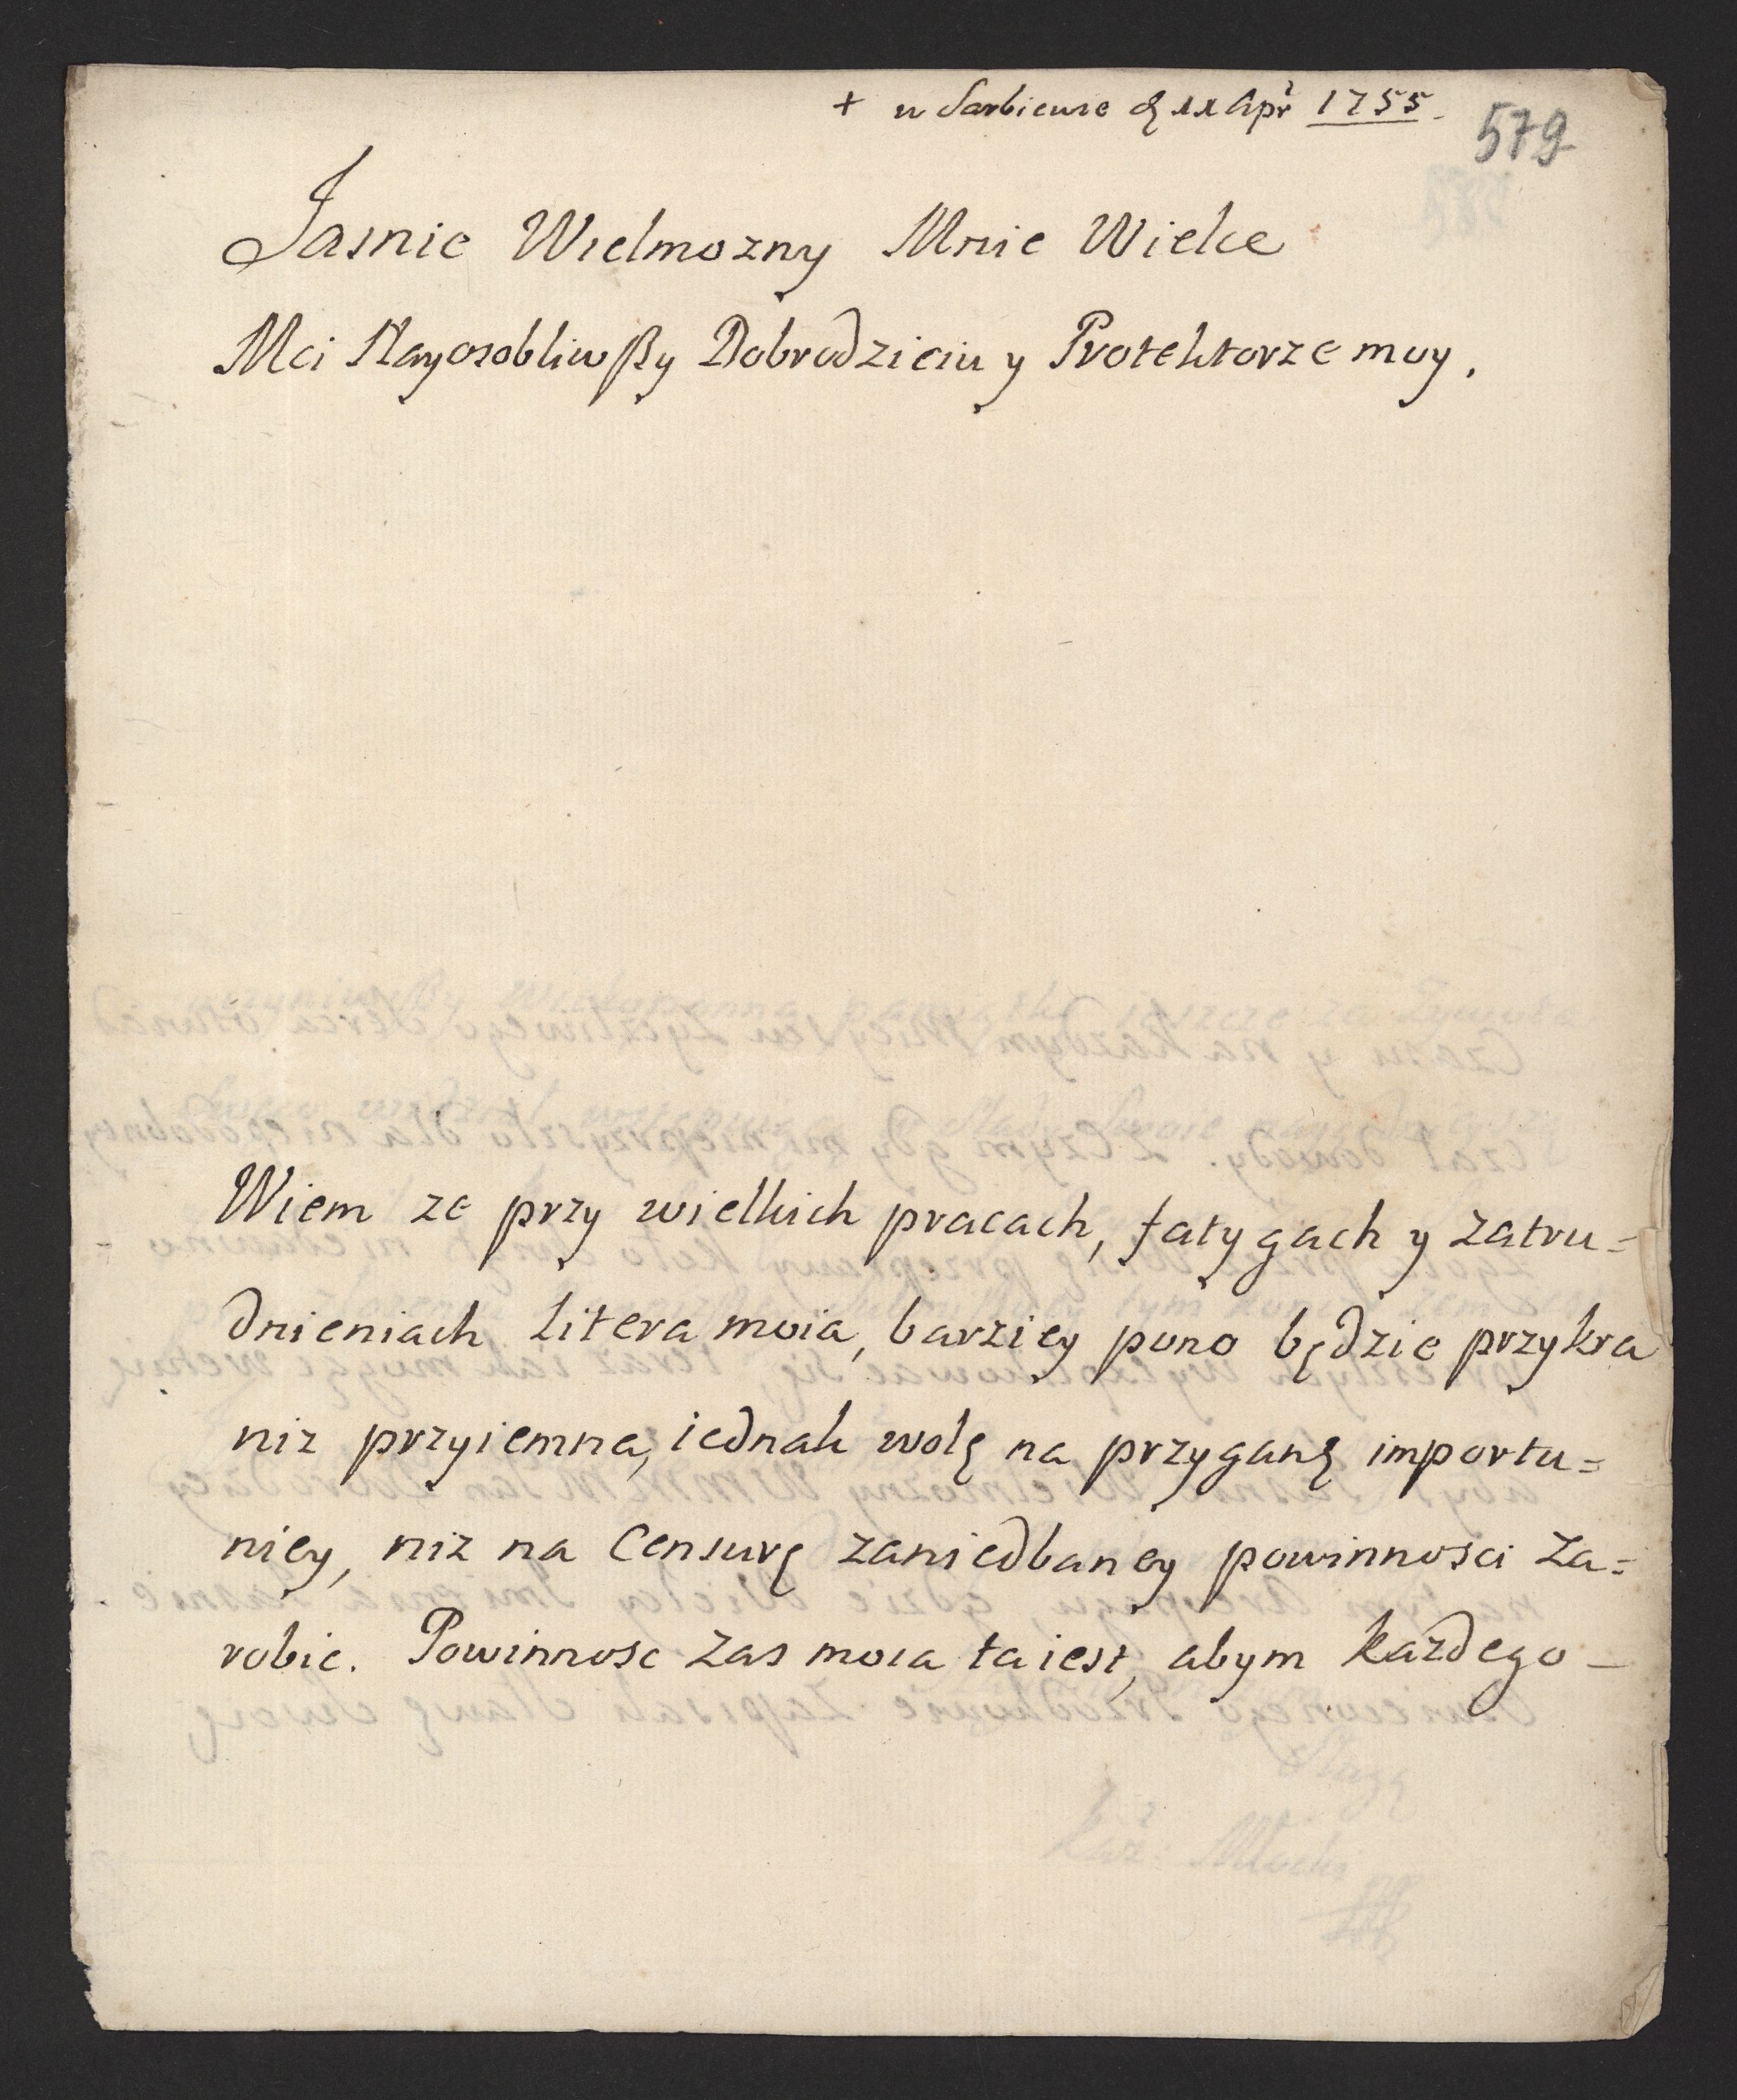 + w Sarbiewie d 11 Apr 1755.
579
Jasnie Wielmozny Mnie Wielce
Mci Nayosobliwßy Dobrodzieiu y Protektorze moy.
Wiem ze przy wielkich pracach, fatygach y zatru=
dnieniach litera moia, barziey pono będzie przykra
niz przyiemna, iednak wolę na przyganę importu=
niey, niz na Censurę zaniedbaney powinnosci za=
robic. Powinnosc zas moia ta iest, abym każdego –